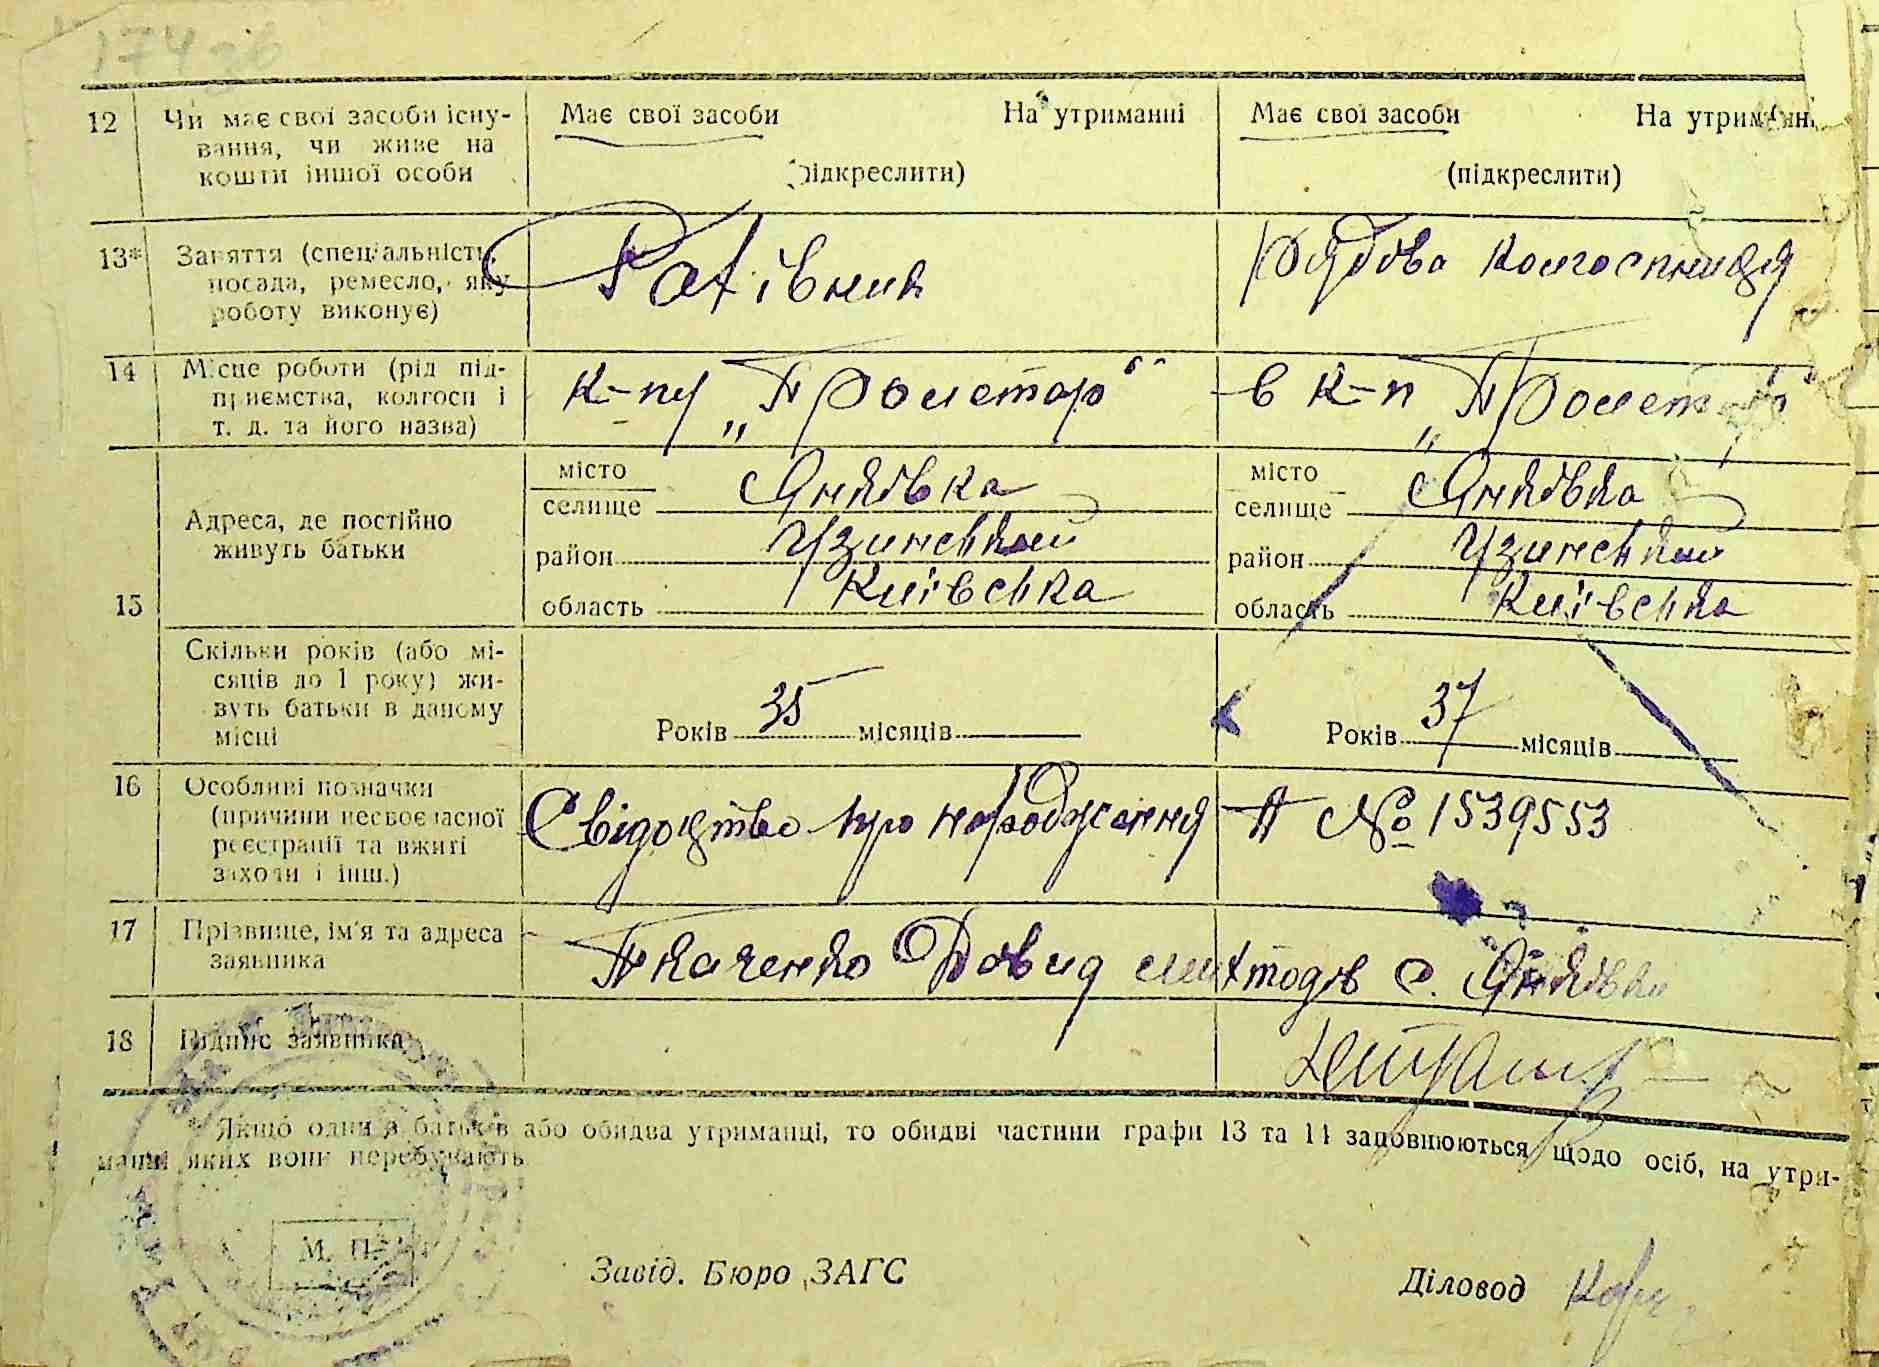 12 Чи має свої засоби існу- Має свої засоби На утриманні Має свої засоби На утриманні
вання, чи живе на
кошти іншої особи (підкреслити) (підкреслити)
13* Заняття (спеціальність, Рахівник Рядова колгоспниця
посада, ремесло, яку
роботу виконує)
14 Місце роботи (рід під- к-пу „Пролетар" в к-п „Пролетар"
приємства, колгосп і
т. д. та його назва)
15 Адреса, де постійно живуть батьки
місто селище Янківка місто селище Янківка
район Узинський район Узинський
область Київська область Київська
Скільки років (або мі-
сяців до 1 року) жи-
вуть батьки в даному
місці Років 35 місяців Років 37 місяців
16 Особливі позначки Свідоцтво про народження А № 1539553
(причини несвоєчасної
реєстрації та вжиті
заходи і інш.)
17 Прізвище, ім'я та адреса Ткаченко Давид с. Янківка
заявника
18 Підпис заявника
* Якщо один з батьків або обидва утриманці, то обидві частини графи 13 та 14 заповнюються щодо осіб, на утри-
манні яких вони перебувають
М. П.
Завід. Бюро ЗАГС Діловод